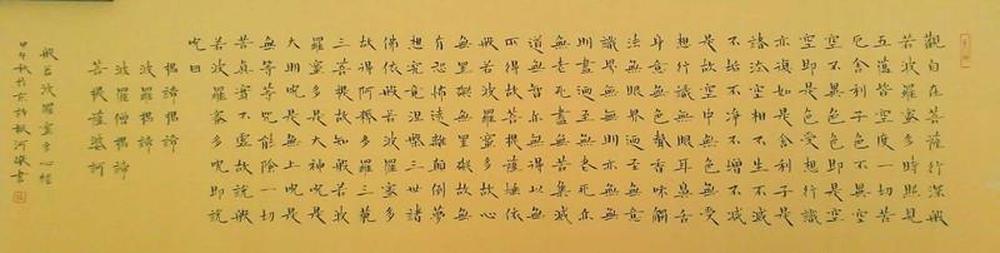 觀自在菩薩行深般
若波羅蜜多時照見
五蘊皆空度一切苦
厄舍利子色不異空
空不異色色即是空
空即是色受想行識
亦復如是舍利子是
諸法空相不生不滅
不垢不淨不增不減
是故空中無色無受
想行識無眼耳鼻舌
身意無色聲香味觸
法無眼界乃至無意
識界無無明亦無無
明盡乃至無老死亦
無老死盡無苦集滅
道無智亦無得以無
所得故菩提薩埵依
般若波羅蜜多故心
無罣礙無罣礙故無
有恐怖遠離顛倒夢
想究竟涅槃三世諸
佛依般若波羅蜜多
故得阿耨多羅三藐
三菩提故知般若波
羅蜜多是大神咒是
大明咒是無上咒是
無等等咒能除一切
苦真實不虛故說般
若波羅蜜多咒即說
咒曰
揭諦揭諦
波羅揭諦
波羅僧揭諦
菩提薩婆訶
般若波羅蜜多心經
甲午秋於京